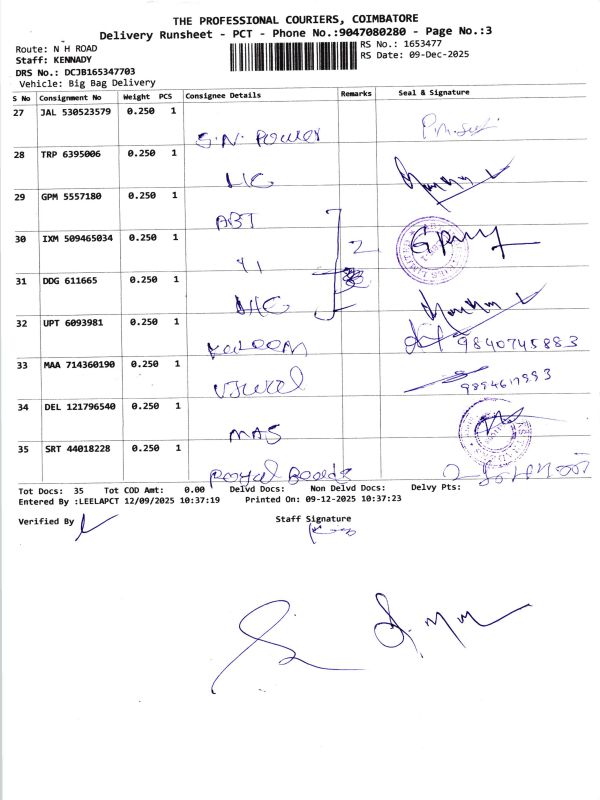 THE PROFESSIONAL COURIERS, COIMBATORE
Delivery Runsheet - PCT - Phone No.:9047080280 - Page No.:3
Route: N H ROAD
RS No.: 1653477
Staff: KENNADY
RS Date: 09-Dec-2025
DRS No.: DCJB165347703
Vehicle: Big Bag Delivery
S No Consignment No Weight PCS Consignee Details Remarks Seal & Signature
27 JAL 530523579 0.250 1
S.N. Power
28 TRP 6395006 0.250 1
LIC
29 GPM 5557180 0.250 1
ABT
30 IXM 509465034 0.250 1
2
31 DDG 611665 0.250 1
32 UPT 6093981 0.250 1
9840745883
33 MAA 714360190 0.250 1
34 DEL 121796540 0.250 1
MAS
35 SRT 44018228 0.250 1
Royal
Tot Docs: 35 Tot COD Amt: 0.00 Delvd Docs: Non Delvd Docs: Delvy Pts:
Entered By :LEELAPCT 12/09/2025 10:37:19 Printed On: 09-12-2025 10:37:23
Verified By
Staff Signature